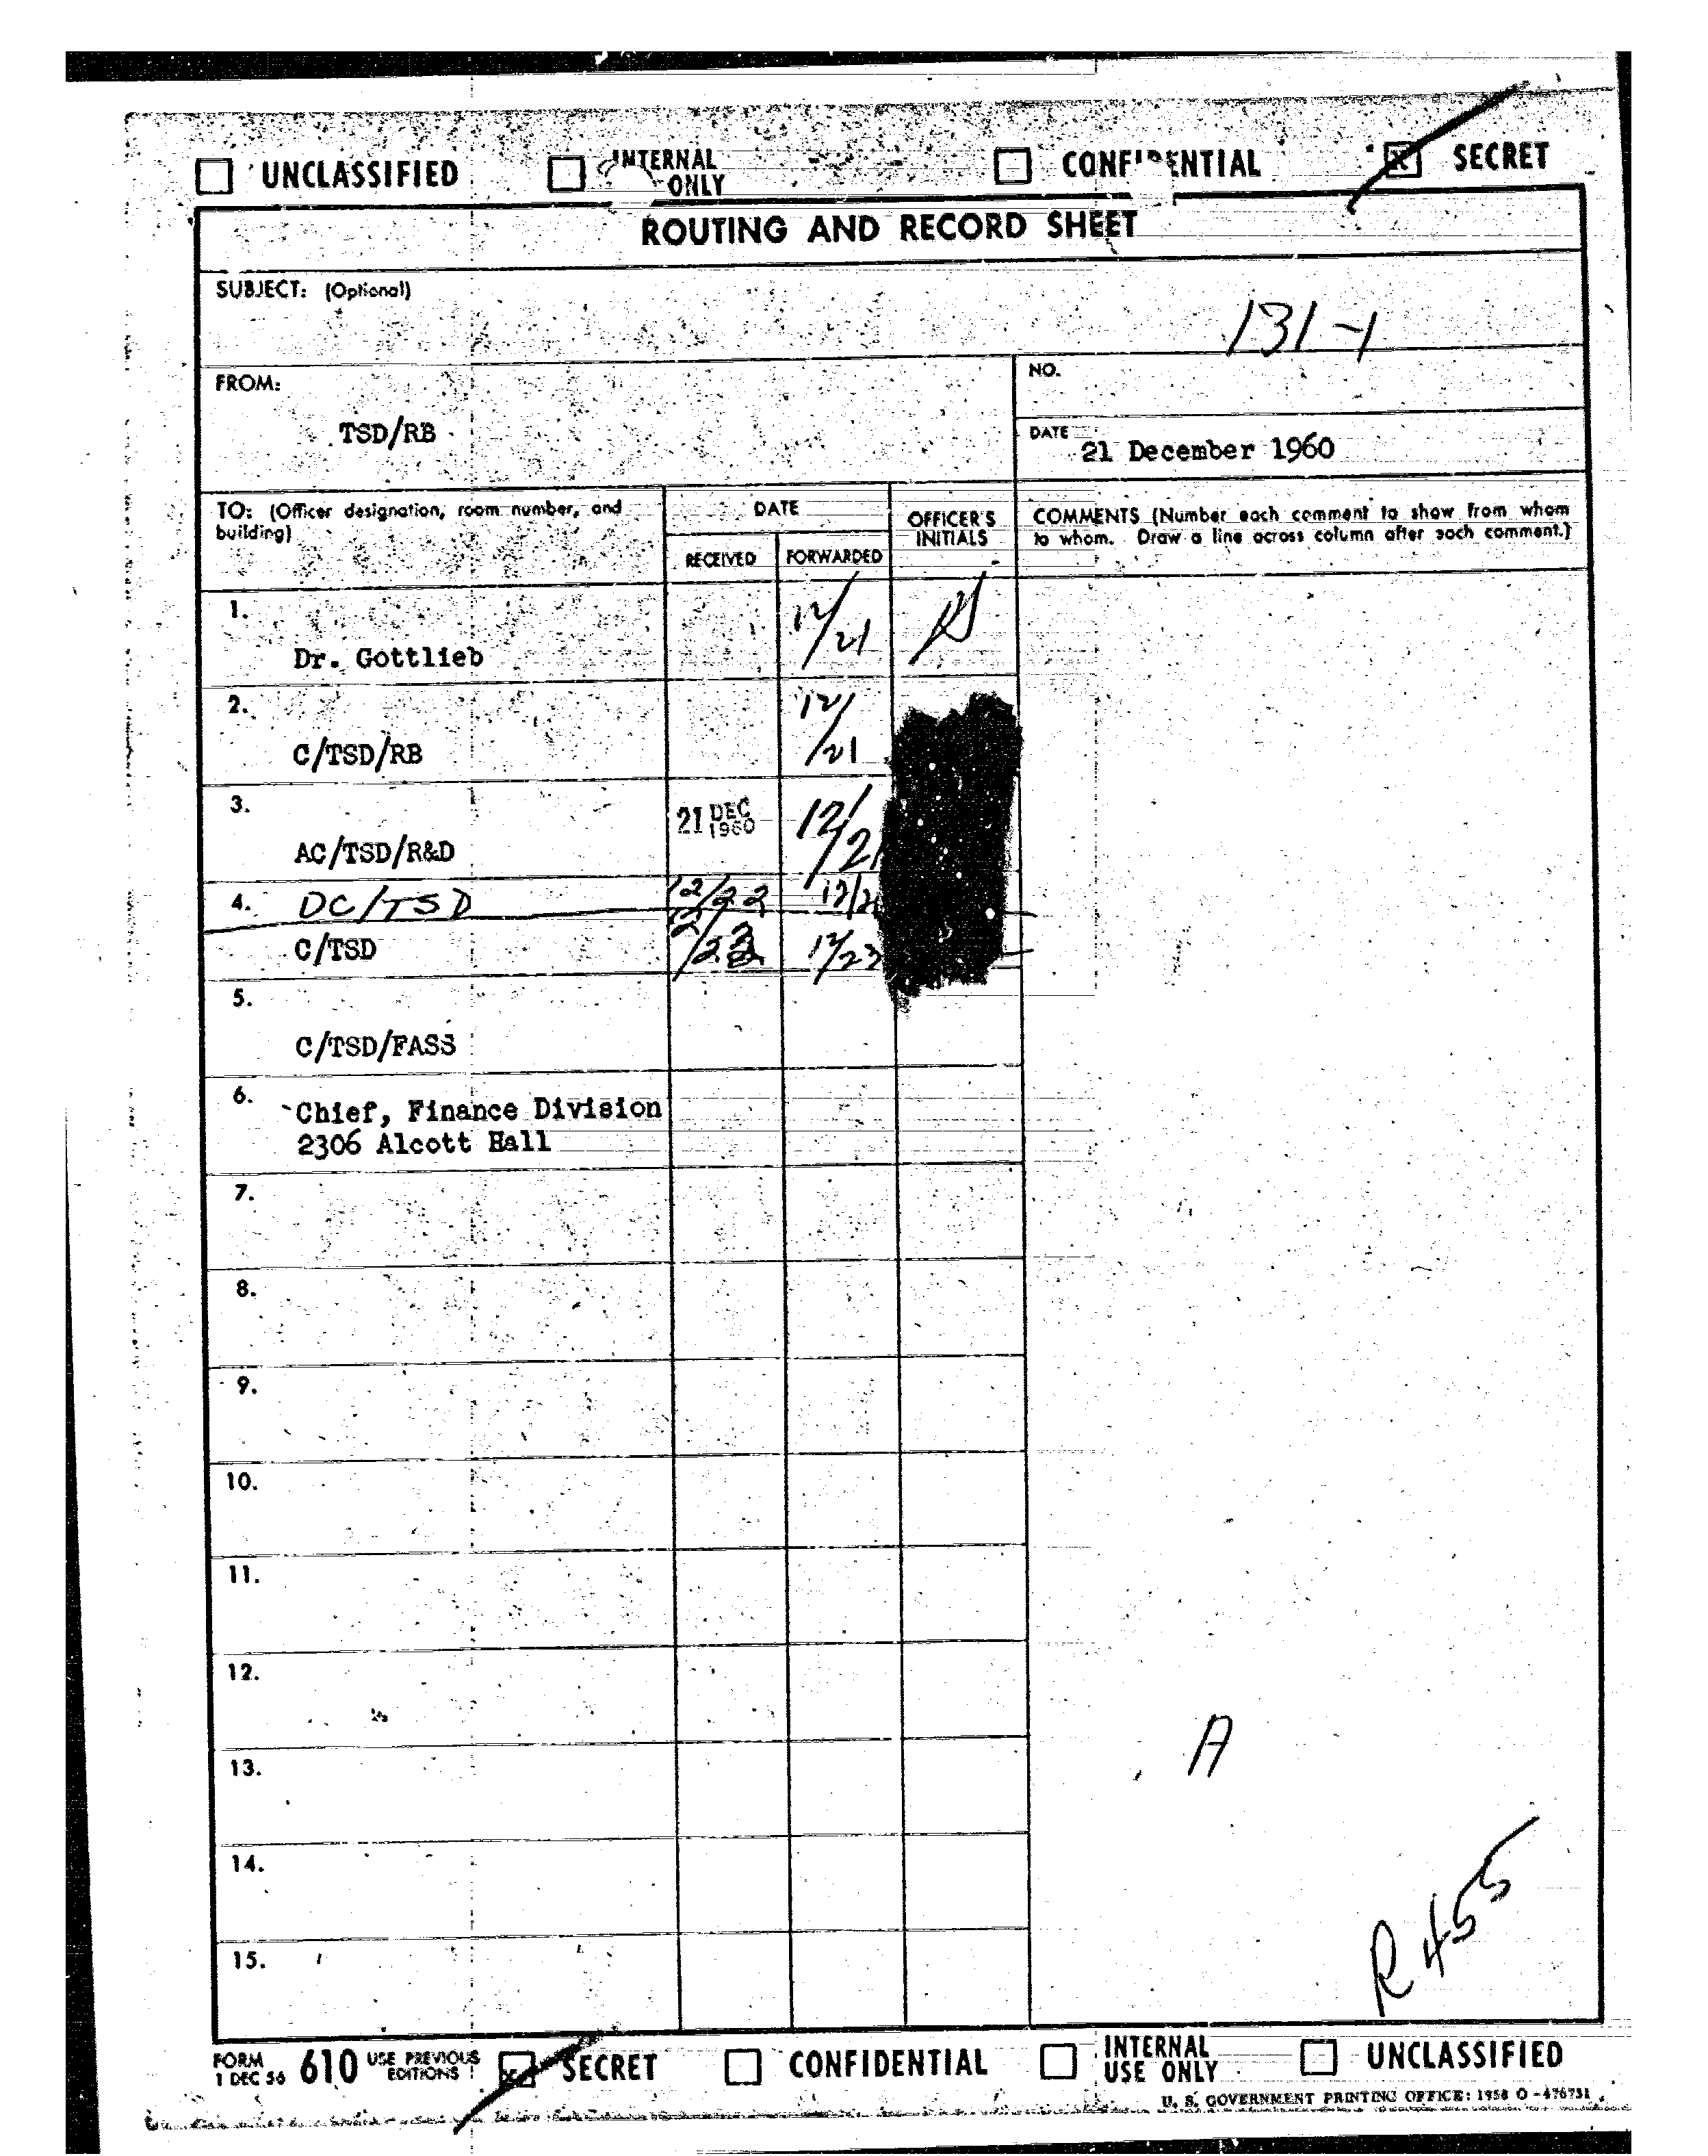 UNCLASSIFIED INTERNAL ONLY CONFIDENTIAL SECRET
ROUTING AND RECORD SHEET
SUBJECT: (Optional)
131-1
FROM:
TSD/RB
NO.
DATE
21 December 1960
TO: (Officer designation, room number, and building)
DATE
RECEIVED FORWARDED
OFFICER'S INITIALS
COMMENTS (Number each comment to show from whom
to whom. Draw a line across column after each comment.)
1.
Dr. Gottlieb 12/21
2.
C/TSD/RB 12/21
3.
AC/TSD/R&D 21 DEC 1960 12/21
4. DC/TSD 12/22
C/TSD 12/23
5.
C/TSD/FASS
6. Chief, Finance Division
2306 Alcott Hall
7.
8.
9.
10.
11.
12.
13.
A
14.
15.
R455
FORM 1 DEC 56 610 USE PREVIOUS EDITIONS SECRET CONFIDENTIAL INTERNAL USE ONLY UNCLASSIFIED
U. S. GOVERNMENT PRINTING OFFICE: 1958 O-476731